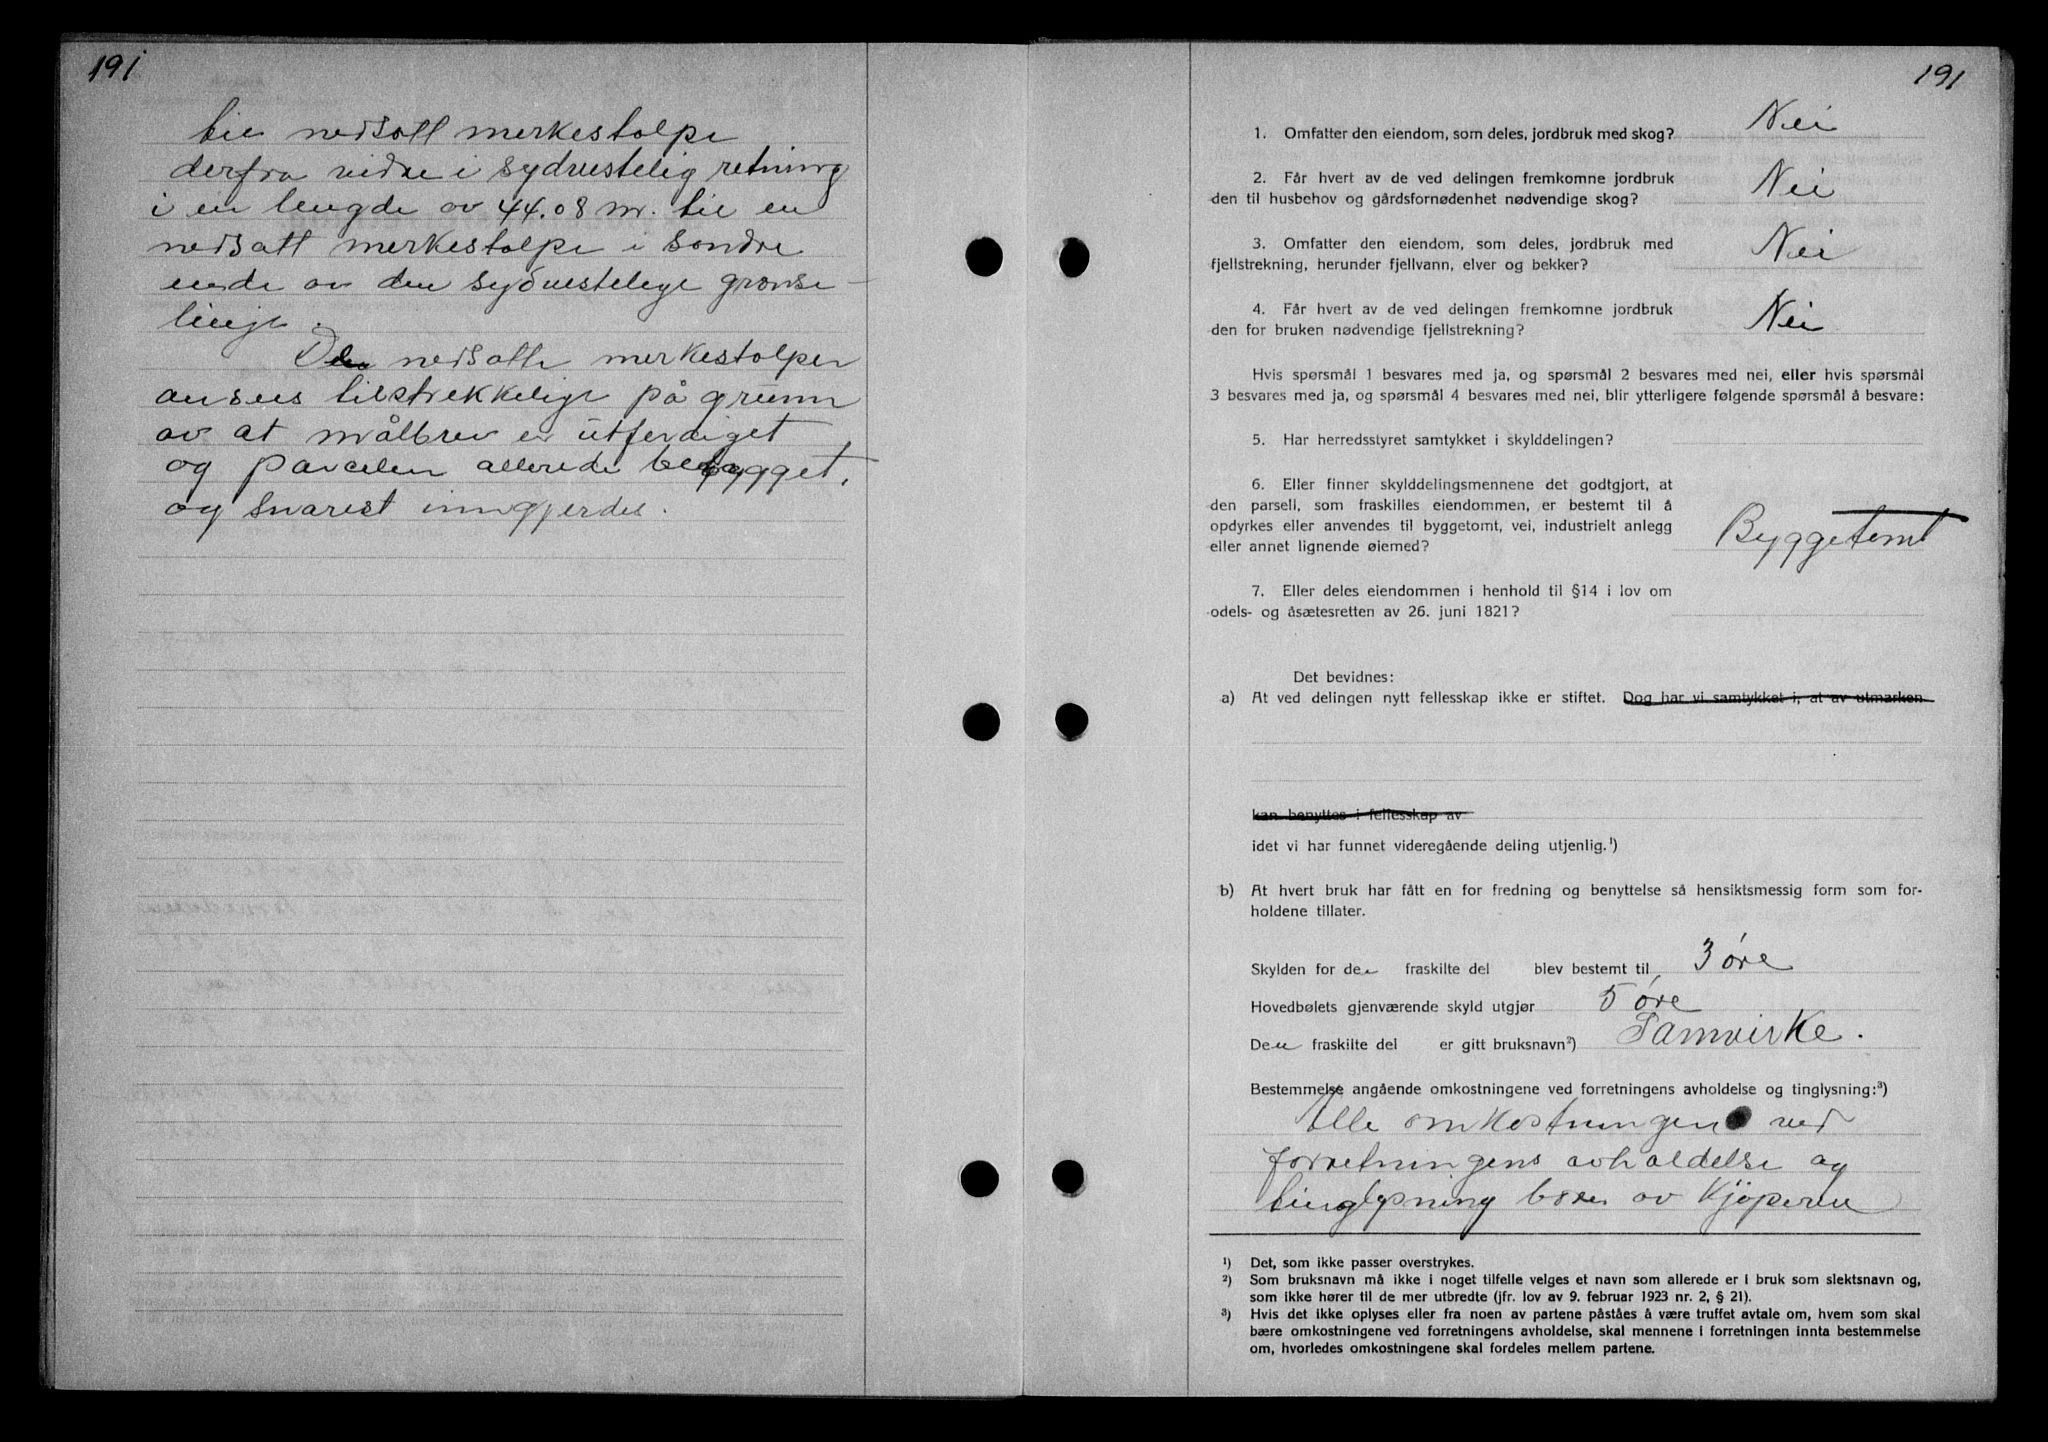 191
til nedsatt merkestolpe
derfra vidre i sydvestelig retning
i en lengde av 44.08 m. til en
nedsatt merkestolpe i søndre
ende av den sydvestelige grense-
linje.
De nedsatte merkestolper
ansees tilstrekkelige på grunn
av at målbrev er utferdiget,
og parcelen allerede bebygget,
og snarest inngjerdes.
191
1. Omfatter den eiendom, som deles, jordbruk med skog? Nei
2. Får hvert av de ved delingen fremkomne jordbruk
den til husbehov og gårdsfornødenhet nødvendige skog? Nei
3. Omfatter den eiendom, som deles, jordbruk med
fjellstrekning, herunder fjellvann, elver og bekker? Nei
4. Får hvert av de ved delingen fremkomne jordbruk
den for bruken nødvendige fjellstrekning? Nei
Hvis spørsmål 1 besvares med ja, og spørsmål 2 besvares med nei, eller hvis spørsmål
3 besvares med ja, og spørsmål 4 besvares med nei, blir ytterligere følgende spørsmål å besvare:
5. Har herredsstyret samtykket i skylddelingen?
6. Eller finner skylddelingsmennene det godtgjort, at
den parsell, som fraskilles eiendommen, er bestemt til å
opdyrkes eller anvendes til byggetomt, vei, industrielt anlegg
eller annet lignende øiemed? Byggetomt
7. Eller deles eiendommen i henhold til §14 i lov om
odels- og åsætesretten av 26. juni 1821?
Det bevidnes:
a) At ved delingen nytt fellesskap ikke er stiftet. Dog har vi samtykket i, at av utmarken
kan benyttes i fellesskap av
idet vi har funnet videregående deling utjenlig.¹)
b) At hvert bruk har fått en for fredning og benyttelse så hensiktsmessig form som for-
holdene tillater.
Skylden for den fraskilte del blev bestemt til 3 øre
Hovedbølets gjenværende skyld utgjør 5 øre
Den fraskilte del er gitt bruksnavn²) Samvirke.
Bestemmelse angående omkostningene ved forretningens avholdelse og tinglysning:³)
Alle omkostningen ved
forretningens avholdelse og
tinglysning bæres av Kjøperen
¹) Det, som ikke passer overstrykes.
²) Som bruksnavn må ikke i noget tilfelle velges et navn som allerede er i bruk som slektsnavn og,
som ikke hører til de mer utbredte (jfr. lov av 9. februar 1923 nr. 2, § 21).
³) Hvis det ikke oplyses eller fra noen av partene påståes å være truffet avtale om, hvem som skal
bære omkostningene ved forretningens avholdelse, skal mennene i forretningen innta bestemmelse
om, hvorledes omkostningene skal fordeles mellem partene.